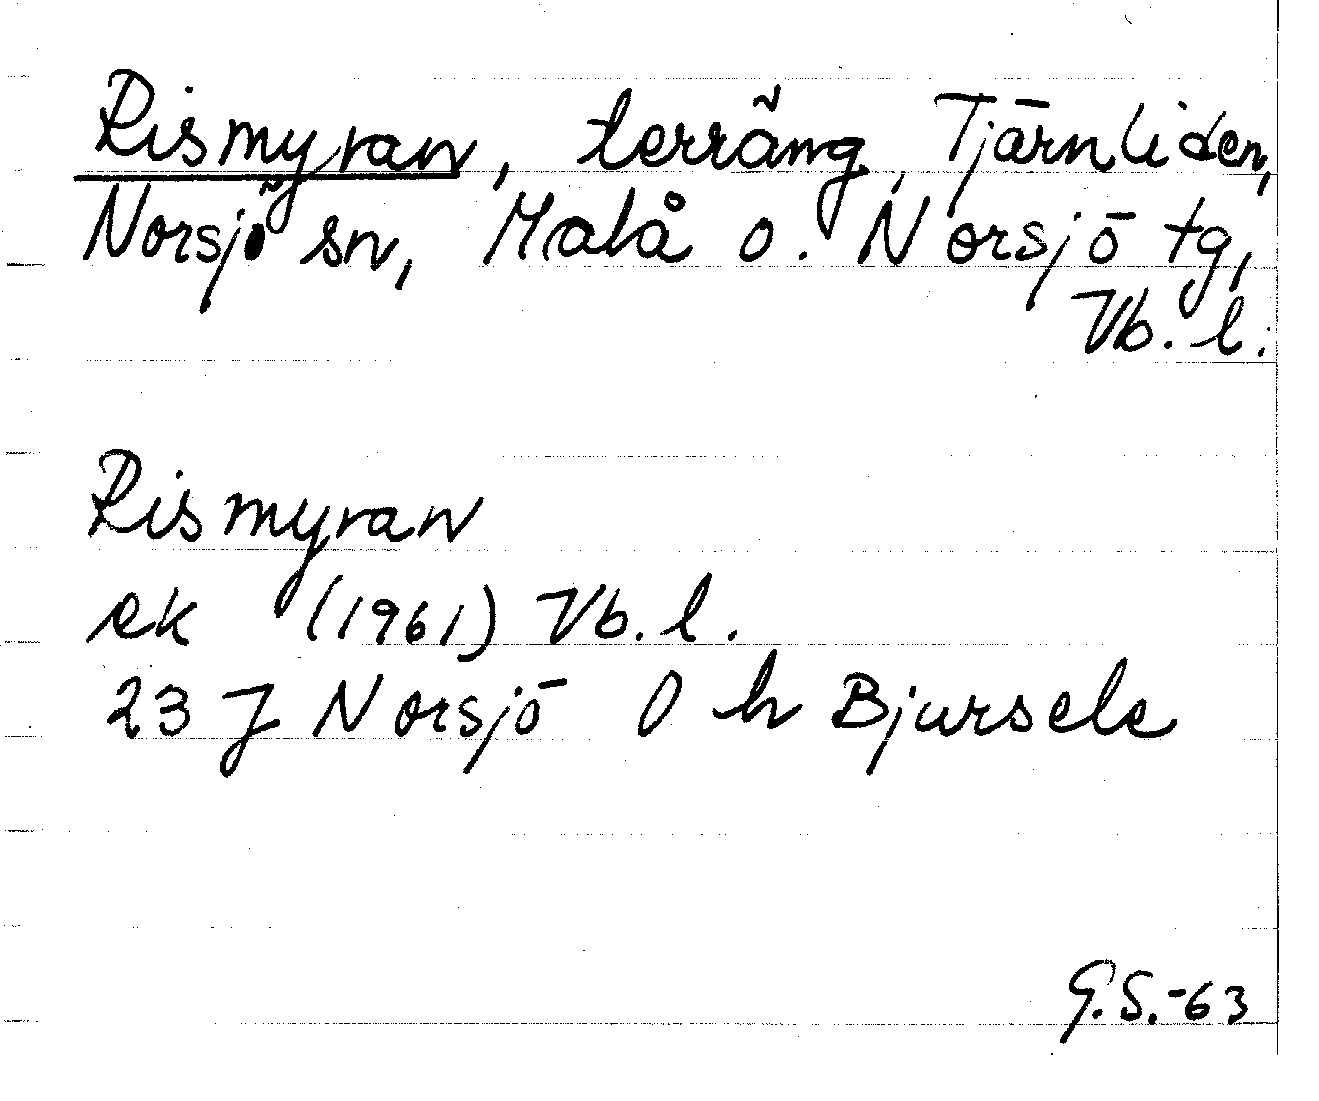 Rismyran, terräng, Tjärnliden,
Norsjö sn, Malå o. Norsjö tg,
Vb. l.
Rismyran
ek (1961) Vb. l.
23 J Norsjö 0 h Bjursele
G.S.-63